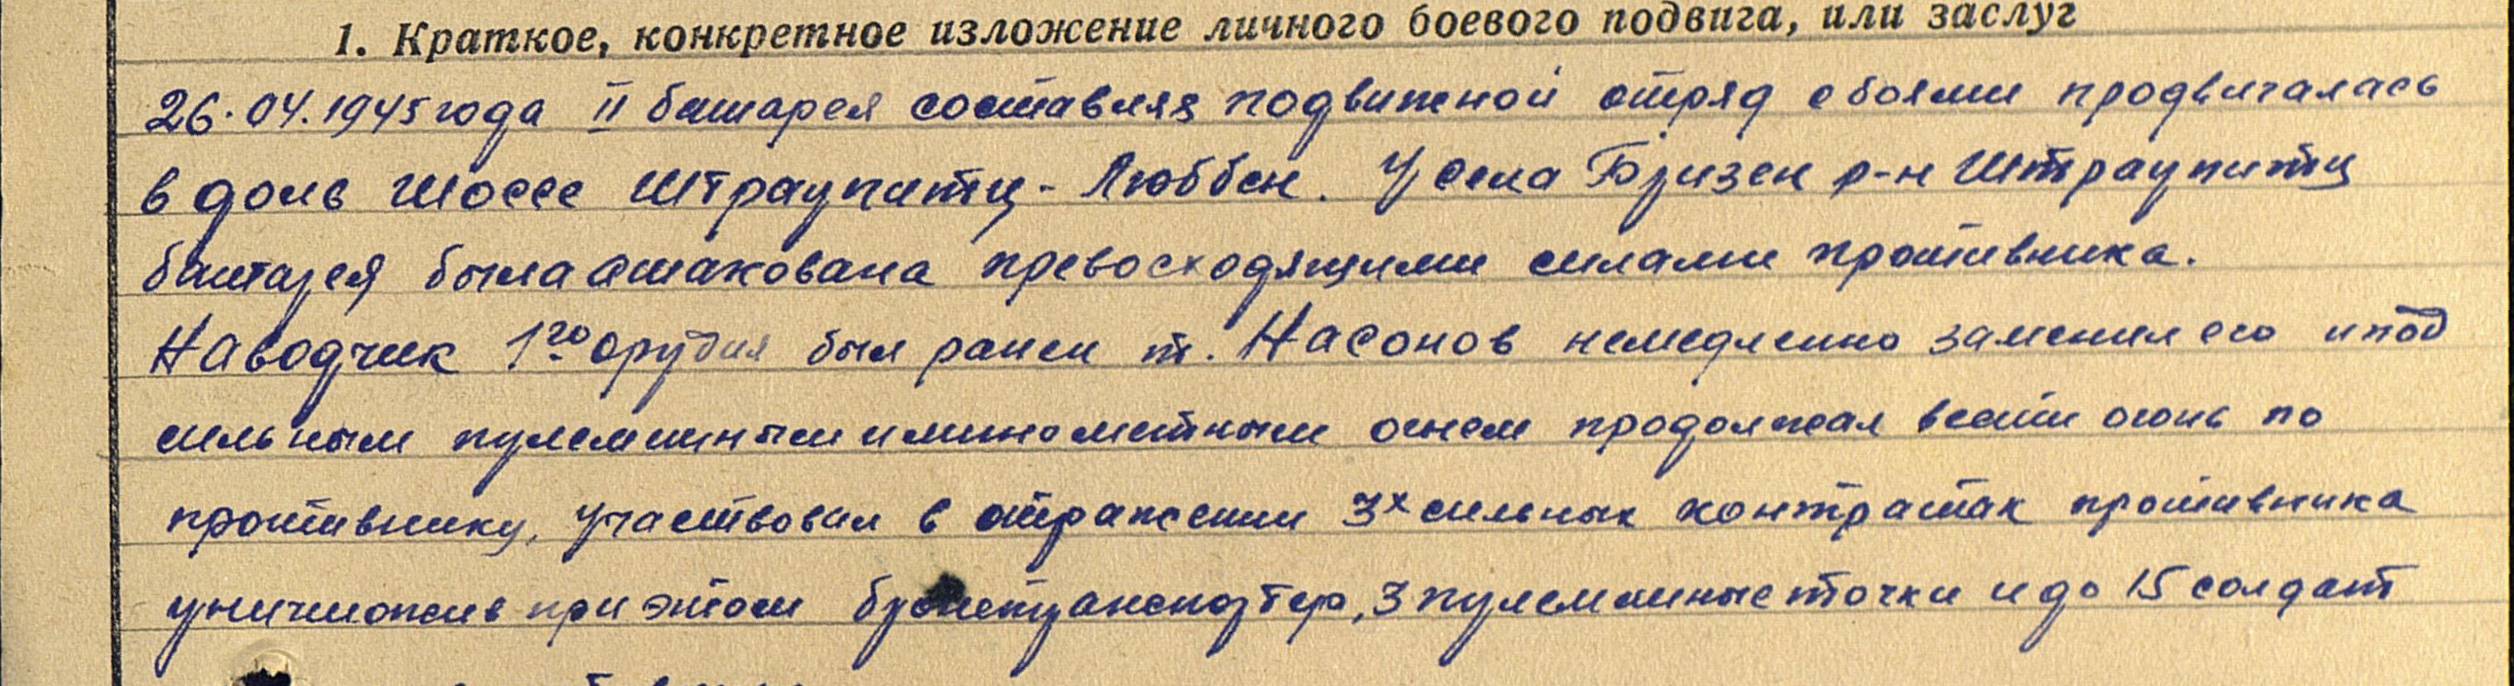 1. Краткое, конкретное изложение личного боевого подвига, или заслуг
26.04.1945 года II батарея составляя подвижной отряд с боями продвигалась
в доль шоссе Штраупитц - Люббен. У села Бризен р-н Штраупитц
батарея была атакована превосходящими силами противника.
Наводчик 1го орудия был ранен т. Насонов немедленно заменил его и под
сильным пулеметным и минометным огнем продолжал вести огонь по
противнику, участвовал в отражении 3х сильных контратак противника
уничтожив при этом бронетранспортер, 3 пулеметные точки и до 15 солдат